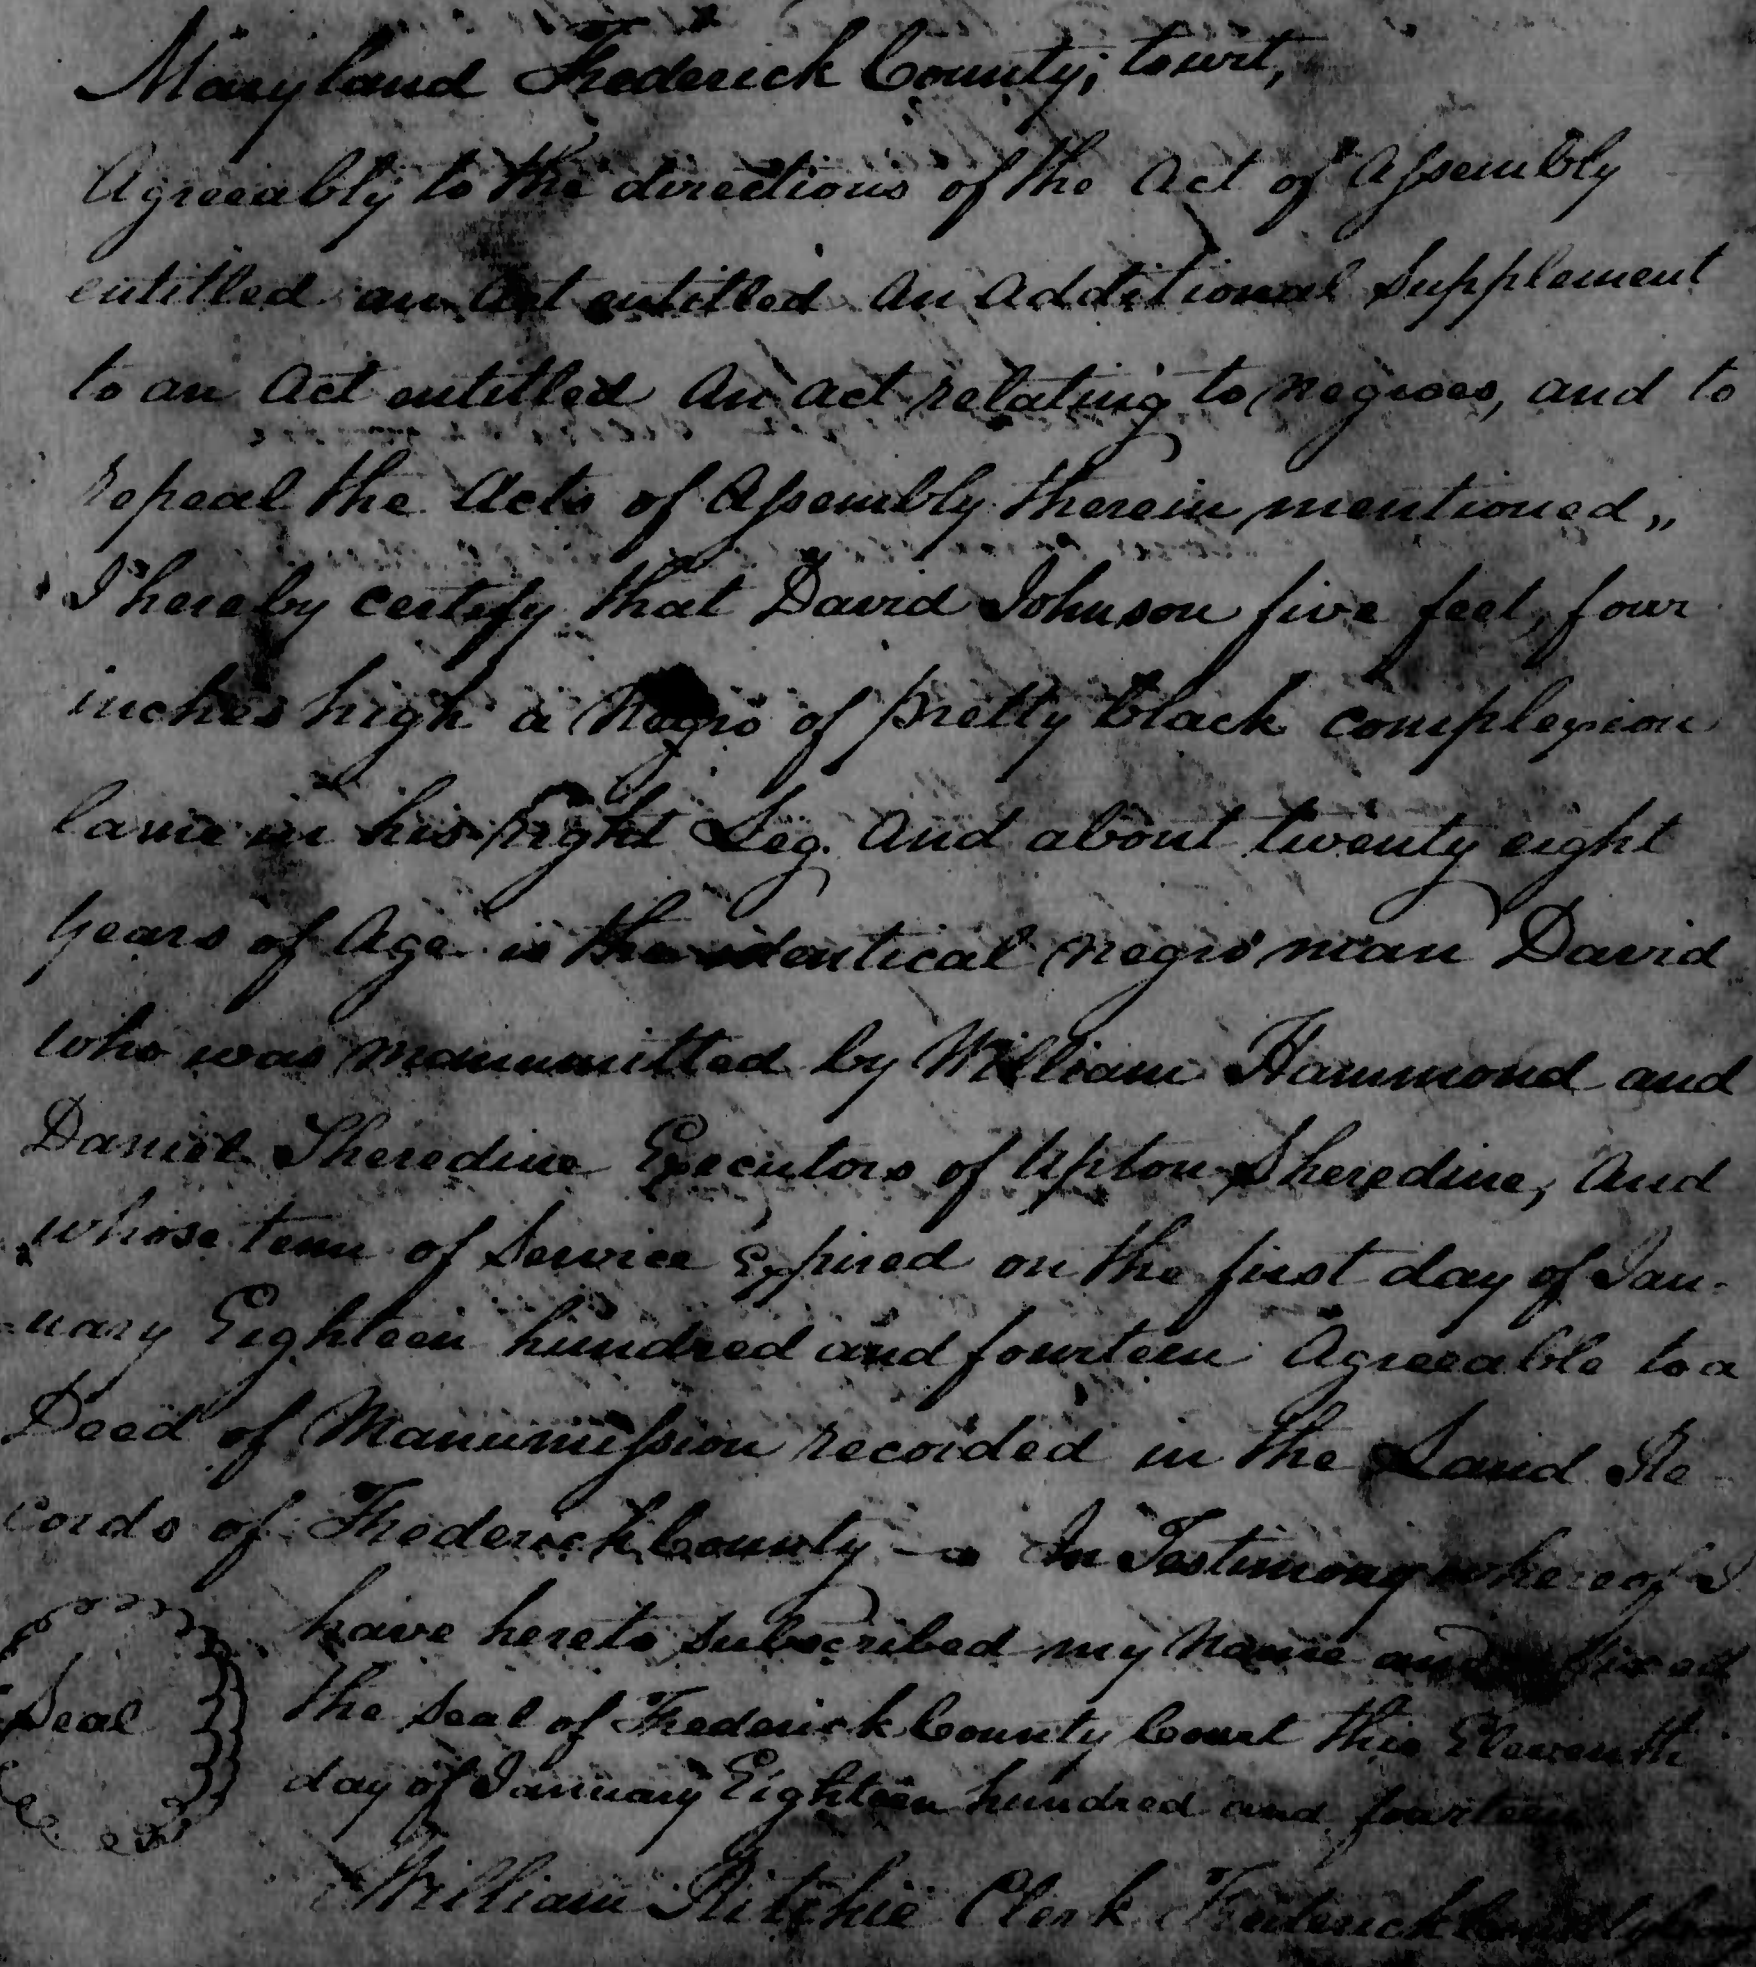 Maryland Frederick County, towit,
Agreeably to the directions of the Act of Assembly
entitled an Act entitled An Additional Supplement
to an Act entitled An act relating to negroes, and to
repeal the Acts of Assembly therein mentioned,,
I hereby certify that David Johnson five feet, four
inches high a Negro of pretty black complexion
lame in his right Leg. And about twenty eight
years of Age is the identical negro man David
who was manumitted by William Hammond and
Daniel Sheredine Executors of Upton Sheredine, And
whose term of Service Expired on the first day of Jan-
uary Eighteen hundred and fourteen Agreeable to a
Deed of Manumission recorded in the Land Re
cords of Frederick County – In Testimony whereof I
have hereto subscribed my Name and affixed
the seal of Frederick County Court this Eleventh
Seal
day of January Eighteen hundred and fourteen
William Ritchie Clerk Frederick County